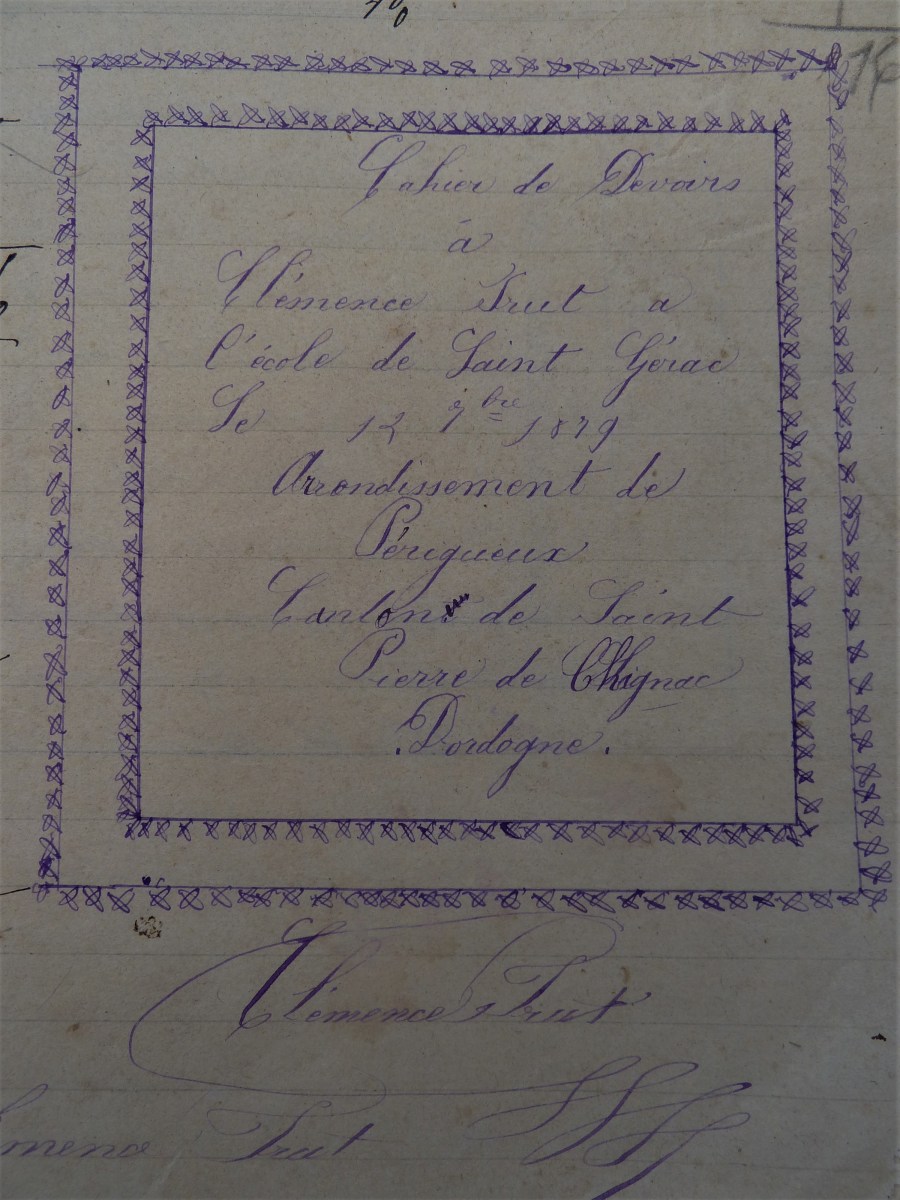 Cahier de Devoirs
à
Clémence Trut a
l'école de Saint Gérac
Le 12 7bre 1879
Arrondissement de
Périgueux
Canton de Saint
Pierre de Chignac
.Dordogne.
Clémence Trut
Trut